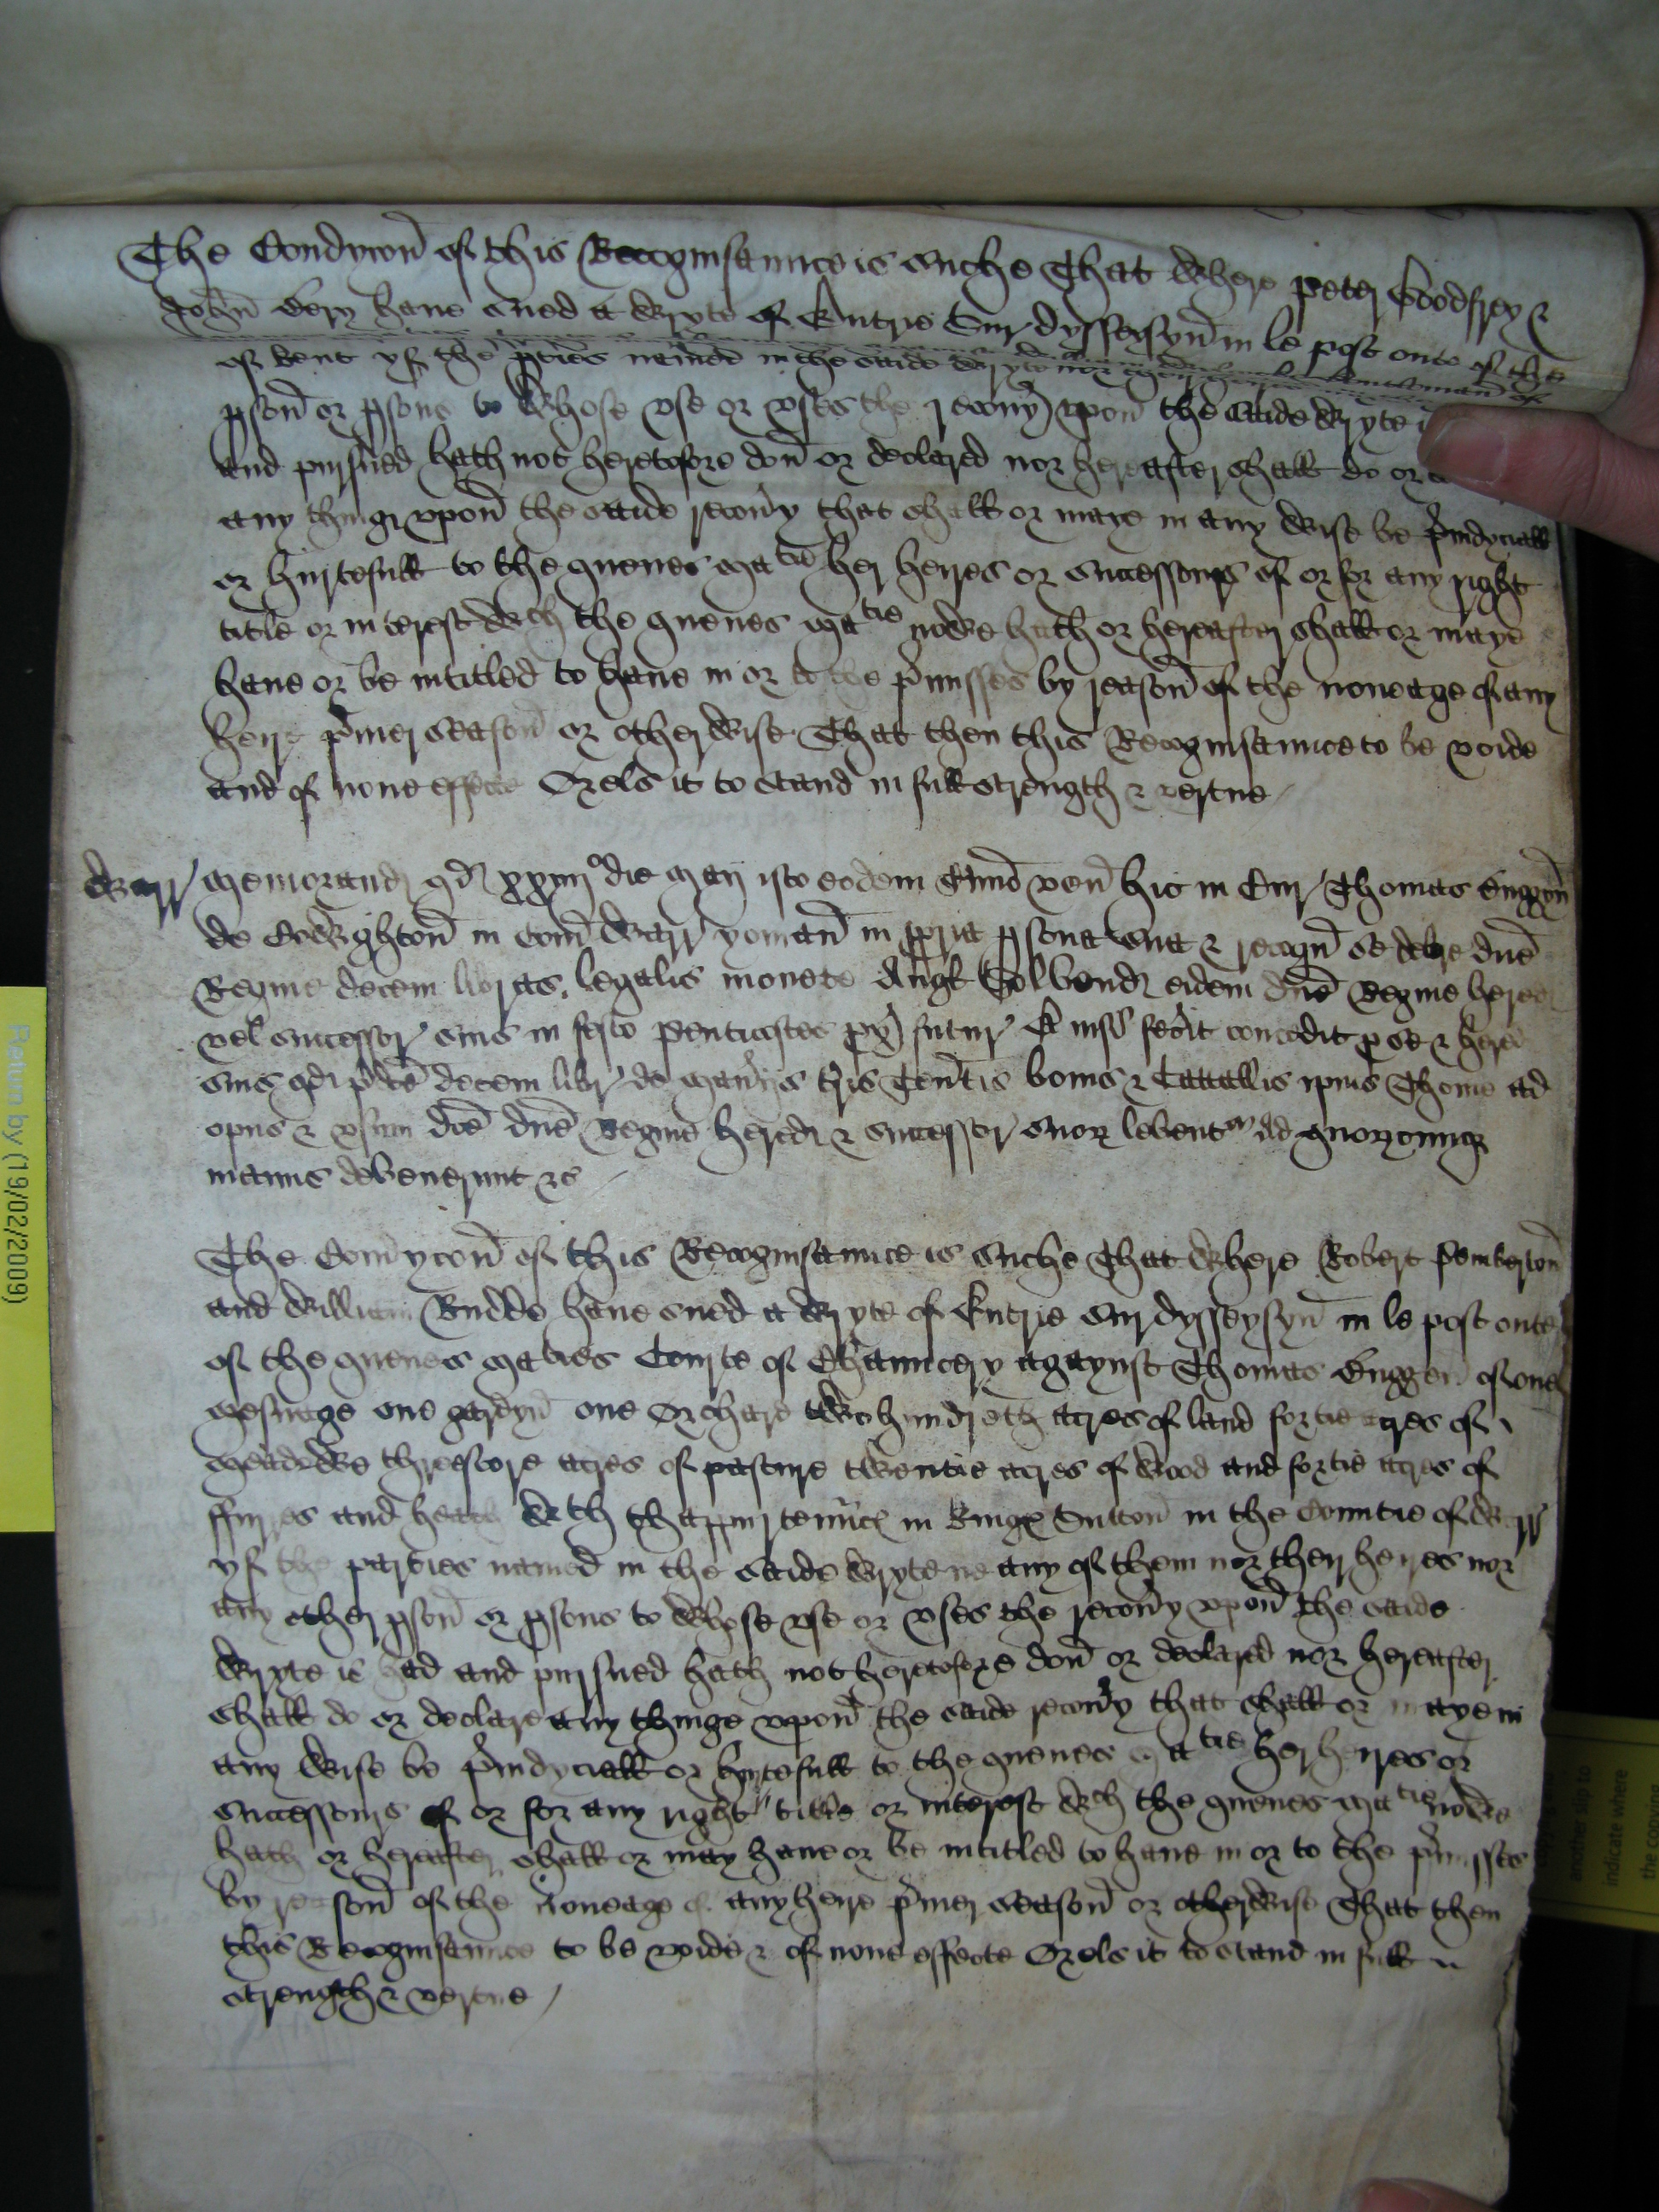 The Condycon of this Recognisaunce is suche That where Peter Goodfrey &
John Bery have sued a wryte of Entrie Sur dysseysyn in le post oute of the
of Kent yf the pties named in the saide wryte nor
pson or psons to whose vse or vses the recouy vpon the saide wryte
and pursued hath not heretofore don or declared nor hereafter shall do or
any thinge vpon the saide recouy that shall or maye in any wise be piudyciall
or hurtefull to the quenes matie her heires or successours of or for any right
title or interest wch the quenes matie nowe hath or hereafter shall or maye
haue or be intitled to haue in or to the pmisses by reason of the noneage of any
heire pmer season or otherwise That then this Recognisaunce to be voide
and of none effecte Orels it to stand in full strength & vertue
Warr Memorand qd xxiiijo die Maij isto eodem Anno ven hic in Cur Thomas Suggyn
de in Com Warr yoman in ppria psona sua & recogn se debre dne
Regine decem libras legalis monete Angl Solvend eidem dne Regine hered
vel successor suis in festo Penticostes px futur Et nisi fecit concedit p se & hered
suis qd pdce decem libr de Manijs tris Tentis bonis & Catallis ipius Thome ad
opus & vsum dce dne Regine hered & successor suor leventr Ad quorcumq
manus devenerunt &c
The Condycon of this Recognisaunce is suche That where Robert Pemberton
and William Budde haue sued a wryte of Entrie Sur dysseysyn in le post oute
of the quenes maties Courte of Chauncery agaynst Thomas Suggen of one
Mesuage one gardyn one Orchard two hundreth acres of land fortie acres of
Meadowe threscore acres of pasture twentie acres of wood and fortie acres of
ffurres and heath wth thappurtennce in Kinge Sutton in the Countie of Warr
yf the parties named in the saide wryte ne any of them nor their heires nor
any other pson or psons to whose vse or vses the recouy vpon the saide
wryte is had and pursued hath not heretofore don or declared nor hereafter
shall do or declare any thinge vpon the saide recouy that shall or maye in
any wise be piudyciall or hurtefull to the quenes matie her heires or
successours of or for any right title or interest wch the quenes matie nowe
hath or hereafter shall or may haue or be intitled to haue in or to the pmisses
by reason of the noneage of any heire pmer season or otherwise That then
this Recognisaunce to be voide & of none effecte Orels it to stand in full
strength & vertue
Return by (19/02/2009)
another slip to
indicate where
the copying